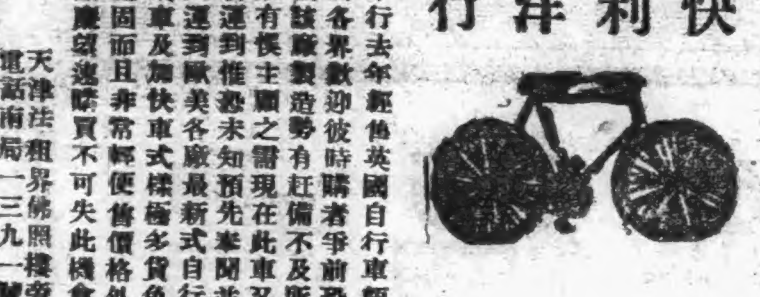 快利洋行
行去年經售英國自行車頗
各界歡迎彼時購者爭前恐
該廠製造勢有趕備不及所
有悞主顧之需現在此車又
運到惟恐未知預先奉聞並
運到歐美各廠最新式自行
車及加快車式樣極多貨色
固而且非常輕便售價格外
速購買不可失此機會
天津法租界佛照樓旁
電話南局一三九一號